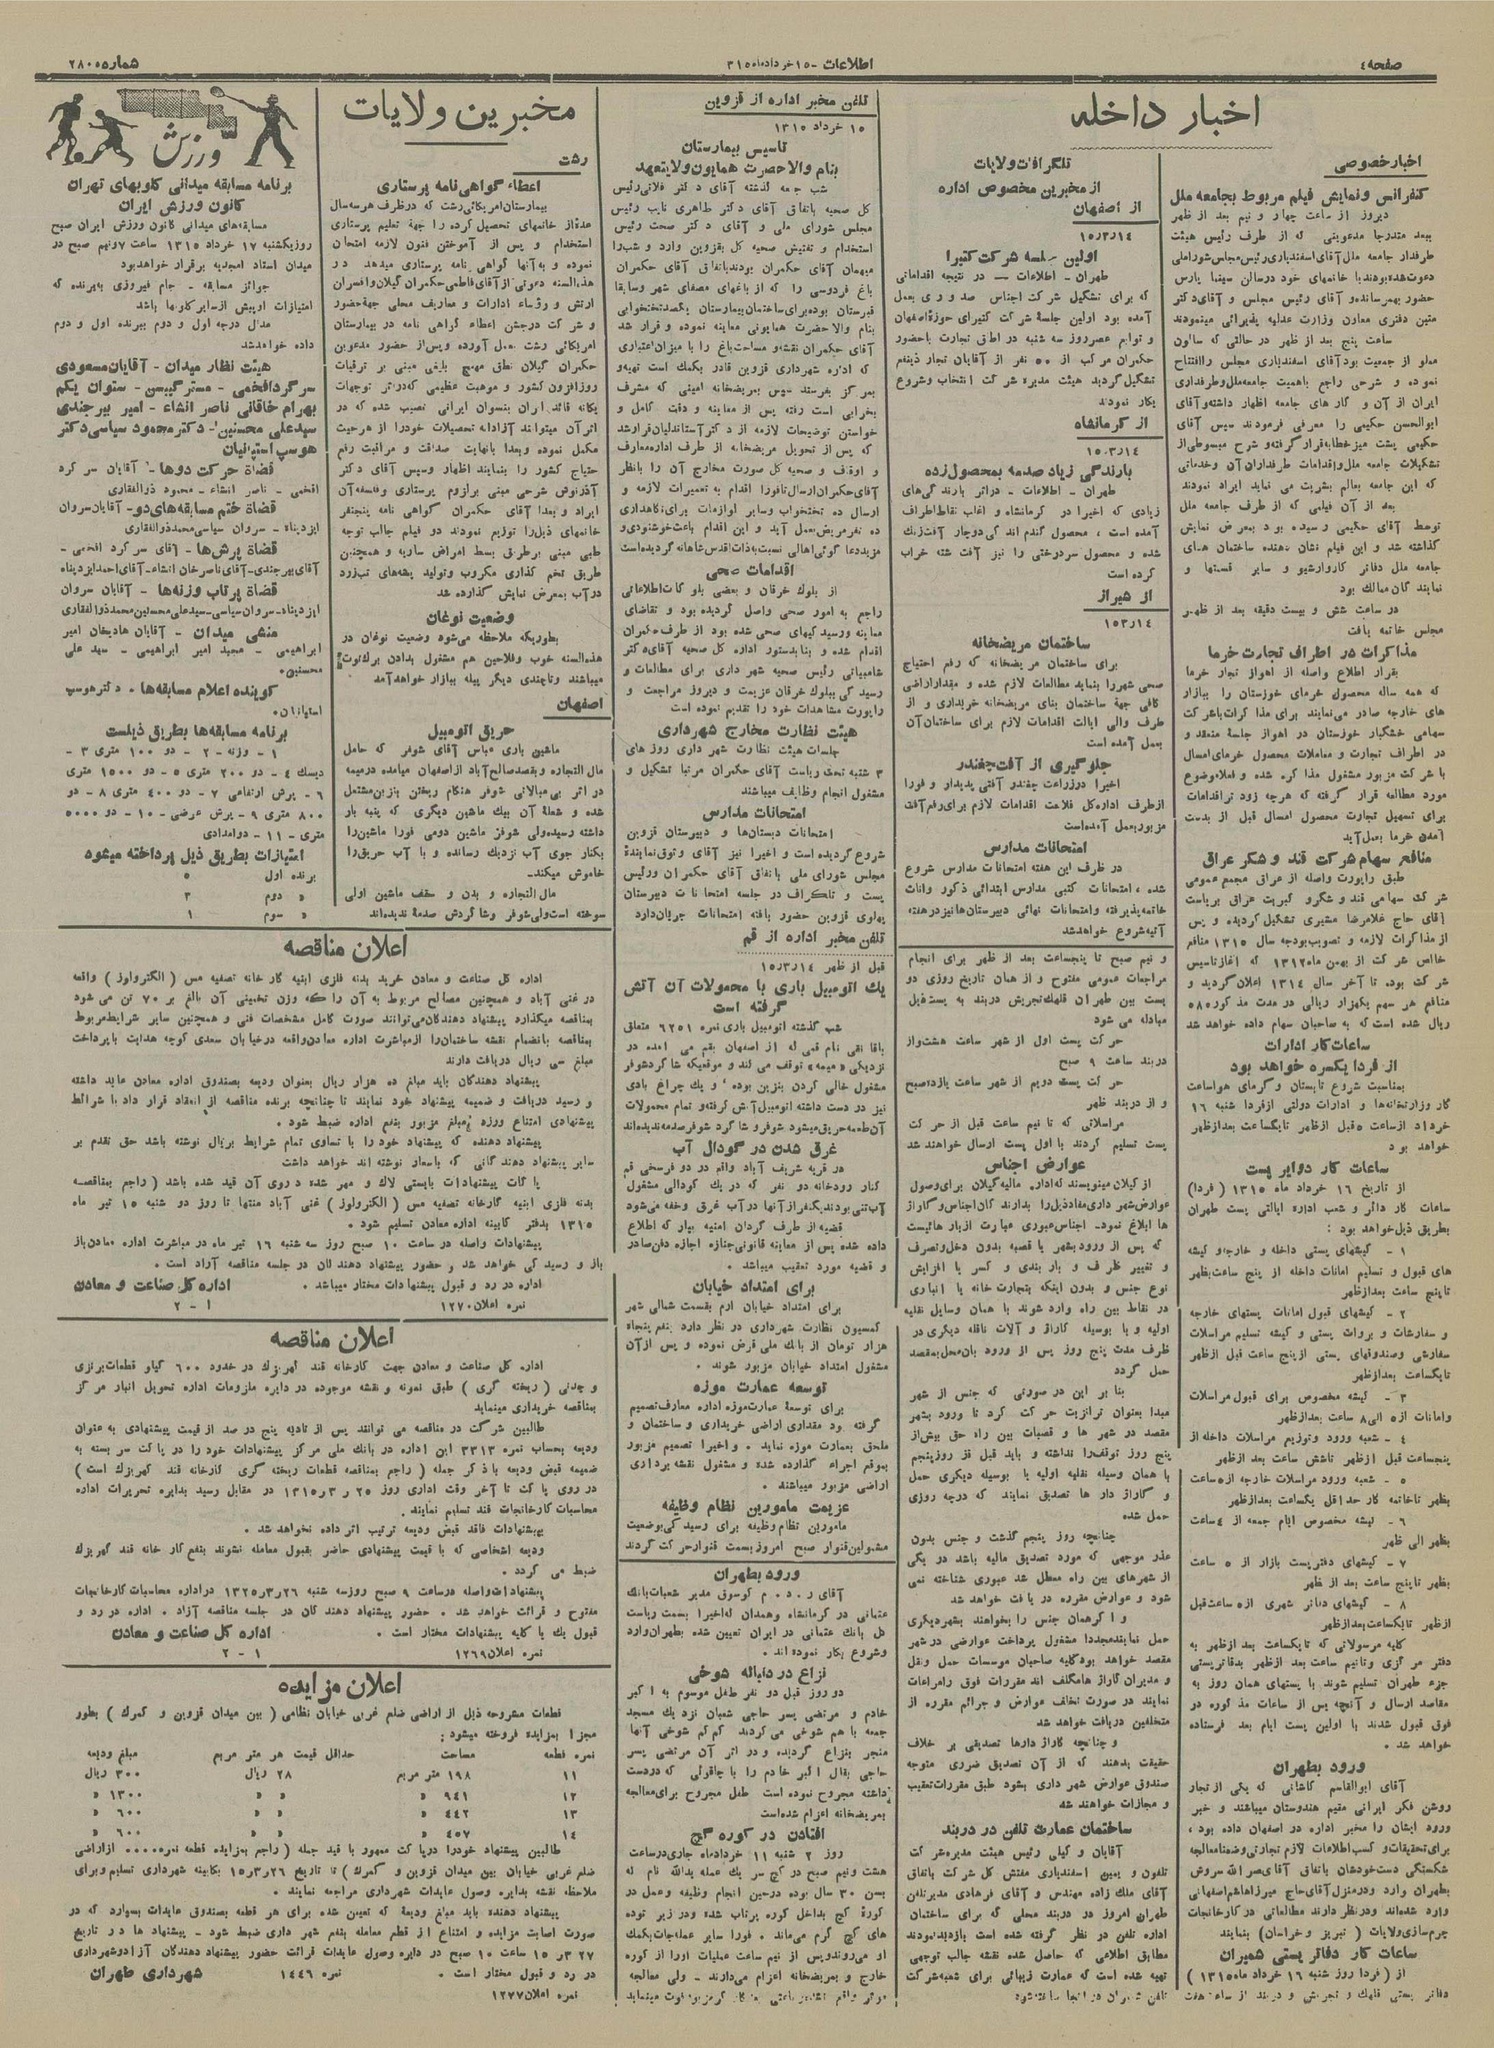 صفحه ٤
اطلاعات - ١٥ خرداد ماه ٣١٥
شماره ٢٨٠٥
اخبار داخله
اخبار خصوصی
کنفرانس و نمایش فیلم مربوط بجامعه ملل
دیروز از ساعت چهار و نیم بعد از ظهر
ببعد متدرجا مدعوینی که از طرف رئیس هیئت
طرفدار جامعه ملل آقای اسفندیاری رئیس مجلس شورای ملی
دعوت شده بودند با خانمهای خود در سالن سینما پارس
حضور بهمرسانده و آقای رئیس مجلس و آقای دکتر
متین دفتری معاون وزارت عدلیه پذیرائی مینمودند
ساعت پنج بعد از ظهر در حالتی که سالون
مملو از جمعیت بود آقای اسفندیاری مجلس را افتتاح
نموده و شرحی راجع باهمیت جامعه ملل و طرفداری
ایران از آن و کار های جامعه اظهار داشته و آقای
ابوالحسن حکیمی را معرفی فرمودند سپس آقای
حکیمی پشت میز خطابه قرار گرفته و شرح مبسوطی از
تشکیلات جامعه ملل و اقدامات طرفداران آن و خدماتی
که این جامعه بعالم بشریت می نماید ایراد نمودند
بعد از آن فیلمی که از طرف جامعه ملل
توسط آقای حکیمی رسیده بود بمعرض نمایش
گذاشته شد و این فیلم نشان دهنده ساختمان های
جامعه ملل دفاتر کار و ارشیو و سایر قسمتها و
نمایند کان ممالک بود
در ساعت شش و بیست دقیقه بعد از ظهر
مجلس خاتمه یافت
مذاکرات در اطراف تجارت خرما
بقرار اطلاع واصله از اهواز تجار خرما
که همه ساله محصول خرمای خوزستان را ببازار
های خارجه صادر می نمایند برای مذاکرات با شرکت
سهامی خشکبار خوزستان در اهواز جلسهٔ منعقد و
در اطراف تجارت و معاملات محصول خرمای امسال
با شرکت مزبور مشغول مذاکره شده و فعلا موضوع
مورد مطالعه قرار گرفته که هرچه زود تر اقدامات
برای تسهیل تجارت محصول امسال قبل از بدست
آمدن خرما بعمل آید
منافع سهام شرکت قند و شکر عراق
طبق راپورت واصله از عراق مجمع عمومی
شرکت سهامی قند و شکر و کبریت عراق بریاست
آقای حاج غلامرضا مشیری تشکیل گردیده و پس
از مذاکرات لازمه و تصویب بودجه سال ١٣١٥ منافع
خالص شرکت از بهمن ماه ١٣١٢ که آغاز تاسیس
شرکت بوده تا آخر سال ١٣١٤ اعلان گردید و
منافع هر سهم یکهزار ریالی در مدت مذکوره ٥٨
ریال شده است که به صاحبان سهام داده خواهد شد
ساعات کار ادارات
از فردا یکسره خواهد بود
بمناسبت شروع تابستان و گرمای هوا ساعت
کار وزارتخانه ها و ادارات دولتی از فردا شنبه ١٦
خرداد از ساعت ٥ قبل از ظهر تا یکساعت بعد از ظهر
خواهد بود
ساعات کار دوایر پست
از تاریخ ١٦ خرداد ماه ١٣١٥ ( فردا )
ساعات کار دائر و شعب اداره ایالتی پست طهران
بطریق ذیل خواهد بود :
١ - گیشهای پستی داخله و خارجه و گیشه
های قبول و تسلیم امانات داخله از پنج ساعت بظهر
تا پنج ساعت بعد از ظهر
٢ - گیشهای قبول امانات پستهای خارجه
و سفارشات و بروات پستی و گیشه تسلیم مراسلات
سفارشی و صندوقهای پستی از پنج ساعت قبل از ظهر
تا یکساعت بعد از ظهر
٣ - گیشه مخصوص برای قبول مراسلات
و امانات از ٥ الی ٨ ساعت بعد از ظهر
٤ - شعبه ورود و توزیع مراسلات داخله از
پنجساعت قبل از ظهر تا شش ساعت بعد از ظهر
٥ - شعبه ورود مراسلات خارجه از ٥ ساعت
بظهر تا خاتمه کار حداقل یکساعت بعد از ظهر
٦ - گیشه مخصوص ایام جمعه از ٤ ساعت
بظهر الی ظهر
٧ - گیشهای دفتر پست بازار از ٥ ساعت
بظهر تا پنج ساعت بعد از ظهر
٨ - گیشهای دفاتر شهری از ٥ ساعت قبل
از ظهر تا یکساعت بعد از ظهر
کلیه مرسولاتی که تا یکساعت بعد از ظهر به
دفتر مرکزی و تا نیم ساعت بعد از ظهر بدفاتر پستی
جزء طهران تسلیم شوند با پستهای همان روز به
مقاصد ارسال و آنچه پس از ساعات مذکوره در
فوق قبول شدند با اولین پست ایام بعد فرستاده
خواهد شد .
ورود بطهران
آقای ابوالقاسم کاشانی که یکی از تجار
روشن فکر ایرانی مقیم هندوستان میباشند و خبر
ورود ایشان را مخبر اداره در اصفهان داده بود ،
برای تحقیقات و کسب اطلاعات لازم تجارتی و ضمنا معالجه
شکستگی دست خودشان باتفاق آقای نصر الله سروش
بطهران وارد و در منزل آقای حاج میرزا هاشم اصفهانی
وارد شده اند و در نظر دارند مطالعاتی در کارخانجات
چرم سازی ولایات ( تبریز و خراسان ) بنمایند
ساعات کار دفاتر پستی شمیران
از ( فردا روز شنبه ١٦ خرداد ماه ١٣١٥ )
دفاتر پستی قلهک و تجریش و دربند از ساعت هفت
تلگرافات ولایات
از مخبرین مخصوص اداره
از اصفهان
١٥٫٣٫١٤
اولین جلسه شرکت کتیرا
طهران - اطلاعات - در نتیجه اقداماتی
که برای تشکیل شرکت اجناس صدوری بعمل
آمده بود اولین جلسهٔ شرکت کتیرای حوزهٔ اصفهان
و توابع عصر روز سه شنبه در اطاق تجارت با حضور
حکمران مرکب از ٥٠ نفر از آقایان تجار ذینفع
تشکیل گردید هیئت مدیره شرکت انتخاب و شروع
بکار نمودند
از کرمانشاه
١٥٫٣٫١٤
بارندگی زیاد صدمه بمحصول زده
طهران - اطلاعات - در اثر بارندگی های
زیادی که اخیرا در کرمانشاه و اغلب نقاط اطراف
آمده است ، محصول گندم اندکی دوچار آفت زنگ
شده و محصول سردرختی را نیز آفت شته خراب
کرده است
از شیراز
١٥٣٫١٤
ساختمان مریضخانه
برای ساختمان مریضخانه که رفع احتیاج
صحی شهر را بنماید مطالعات لازم شده و مقدار اراضی
کافی جهة ساختمان بنای مریضخانه خریداری و از
طرف والی ایالت اقدامات لازم برای ساختمان آن
بعمل آمده است
جلوگیری از آفت چغندر
اخیرا در زراعت چغندر آفتی پدیدار و فورا
از طرف اداره کل فلاحت اقدامات لازم برای رفع آفت
مزبور بعمل آمده است
امتحانات مدارس
در ظرف این هفته امتحانات مدارس شروع
شده ، امتحانات کتبی مدارس ابتدائی ذکور و اناث
خاتمه پذیرفته و امتحانات نهائی دبیرستان ها نیز در هفته
آتیه شروع خواهد شد
و نیم صبح تا پنجساعت بعد از ظهر برای انجام
مراجعات عمومی مفتوح و از همان تاریخ روزی دو
پست بین طهران قلهک تجریش دربند به پست ذیل
مبادله می شود
حرکت پست اول از شهر ساعت هشت و از
دربند ساعت ٩ صبح
حرکت پست دویم از شهر ساعت یازده صبح
و از دربند ظهر
مراسلاتی که تا نیم ساعت قبل از حرکت
پست تسلیم گردند با اول پست ارسال خواهند شد
عوارض اجناس
از گیلان مینویسند که اداره مالیه گیلان برای وصول
عوارض شهرداری مفاد ذیل را بدارندگان اجناس و گاراژ
ها ابلاغ نمود . اجناس عبوری عبارت از بار هائیست
که پس از ورود بشهر یا قصبه بدون دخل و تصرف
و تغییر ظرف و بار بندی و کسر یا افزایش
نوع جنس و بدون اینکه بتجارت خانه یا انباری
در نقاط بین راه وارد شوند با همان وسایل نقلیه
اولیه و یا بوسیله گاراژ و آلات ناقله دیگری در
ظرف مدت پنج روز پس از ورود بان محل بمقصد
حمل گردد
بنا بر این در صورتی که جنس از شهر
مبدا بعنوان ترانزیت حرکت کرد تا ورود بشهر
مقصد در شهر ها و قصبات بین راه حق بیش از
پنج روز توقف را نداشته و باید قبل از روز پنجم
با همان وسیله نقلیه اولیه یا بوسیله دیگری حمل
و گاراژ دار ها تصدیق نمایند که درچه روزی
حمل شده
چنانچه روز پنجم گذشت و جنس بدون
عذر موجهی که مورد تصدیق مالیه باشد در یکی
از شهرهای بین راه معطل شد عبوری شناخته نمی
شود و عوارض مقرره دریافت خواهد شد
و اگر همان جنس را بخواهند بشهر دیگری
حمل نمایند مجددا مشغول پرداخت عوارضی در شهر
مقصد خواهد بود کلیه صاحبان موسسات حمل و نقل
و مدیران گاراژ ها مکلف اند مقررات فوق را مراعات
نمایند در صورت تخلف عوارض و جرائم مقرره از
متخلفین دریافت خواهد شد
و چنانچه گاراژ دارها تصدیقی بر خلاف
حقیقت بدهند که از آن تصدیق ضرری متوجه
صندوق عوارض شهر داری بشود طبق مقررات تعقیب
و مجازات خواهند شد
ساختمان عمارت تلفن در دربند
آقایان و کیلی رئیس هیئت مدیره شرکت
تلفون و یمین اسفندیاری مفتش کل شرکت باتفاق
آقای ملک زاده مهندس و آقای فرهادی مدیر تلفن
طهران امروز در دربند محلی که برای ساختمان
اداره تلفن در نظر گرفته شده است بازدید نمودند
مطابق اطلاعی که حاصل شده نقشه جالب توجهی
تهیه شده است که عمارت زیبائی برای شعبه شرکت
تلفن شمیران در آنجا ساخته شود
تلفن مخبر اداره از قزوین
١٥ خرداد ١٣١٥
تاسیس بیمارستان
بنام والاحضرت همایون ولایتعهد
شب جمعه گذشته آقای دکتر فلاتی رئیس
کل صحیه باتفاق آقای دکتر طاهری نایب رئیس
مجلس شورای ملی و آقای دکتر صحت رئیس
استخدام و تفتیش صحیه کل بقزوین وارد و شب را
میهمان آقای حکمران بودند باتفاق آقای حکمران
باغ فردوسی را که از باغهای مصفای شهر و سابقا
قبرستان بوده برای ساختمان بیمارستان یکصد تختخوابی
بنام والا حضرت همایونی معاینه نموده و قرار شد
آقای حکمران نقشه و مساحت باغ را با میزان اعتباری
که اداره شهرداری قزوین قادر بکمک است تهیه و
بمرکز بفرستد سپس بمریضخانه امینی که مشرف
بخرابی است رفته پس از معاینه و دقت کامل و
خواستن توضیحات لازمه از دکتر آستاندلیان قرار شد
که پس از تحویل مریضخانه از طرف اداره معارف
و اوقاف و صحیه کل صورت مخارج آن را بانظر
آقای حکمران ارسال تا فورا اقدام به تعمیرات لازمه و
ارسال ده تختخواب و سایر لوازمات برای نگاهداری
ده نفر مریض بعمل آید و این اقدام باعث خوشنودی و
مزید دعا گوئی اهالی نسبت به ذات اقدس شاهانه گردیده است
اقدامات صحی
از بلوک خرقان و بعضی بلوکات اطلاعاتی
راجع به امور صحی واصل گردیده بود و تقاضای
معاینه و رسیدگیهای صحی شده بود از طرف حکمران
اقدام شده و بنا بدستور اداره کل صحیه آقای دکتر
شامبیاتی رئیس صحیه شهرداری برای مطالعات و
رسیدگی ببلوک خرقان عزیمت و دیروز مراجعت و
راپورت مشاهدات خود را تقدیم نموده است
هیئت نظارت مخارج شهرداری
جلسات هیئت نظارت شهرداری روز های
٣ شنبه تحت ریاست آقای حکمران مرتبا تشکیل و
مشغول انجام وظایف میباشند
امتحانات مدارس
امتحانات دبستان ها و دبیرستان قزوین
شروع گردیده است و اخیرا نیز آقای وثوق نمایندهٔ
مجلس شورای ملی باتفاق آقای حکمران و رئیس
پست و تلگراف در جلسه امتحانات دبیرستان
پهلوی قزوین حضور یافته امتحانات جریان دارد
تلفن مخبر اداره از قم
قبل از ظهر ١٥٫٣٫١٤
یک اتومبیل باری با محمولات آن آتش
گرفته است
شب گذشته اتومبیل باری نمره ٦٢٥١ متعلق
باقا تقی نام قمی که از اصفهان بقم می آمده در
نزدیکی «میمه» توقف می کند و موقعیکه شاگرد شوفر
مشغول خالی کردن بنزین بوده ، و یک چراغ بادی
نیز در دست داشته اتومبیل آتش گرفته و تمام محمولات
آن طعمه حریق میشود شوفر و شاگرد شوفر صدمه ندیده اند
غرق شدن در گودال آب
در قریه شریف آباد واقع در دو فرسخی قم
کنار رودخانه دو نفر که در یک گودالی مشغول
آب تنی بودند یکنفر از آنها در آب غرق و خفه می شود
قضیه از طرف گردان امنیه بیار که اطلاع
داده شده پس از معاینه قانونی جنازه اجازه دفن صادر
و قضیه مورد تعقیب میباشد .
برای امتداد خیابان
برای امتداد خیابان ارم بقسمت شمالی شهر
کمسیون نظارت شهرداری در نظر دارد مبلغ پنجاه
هزار تومان از بانک ملی قرض نموده و پس از آن
مشغول امتداد خیابان مزبور شوند .
توسعه عمارت موزه
برای توسعهٔ عمارت موزه اداره معارف تصمیم
گرفته بود مقداری اراضی خریداری و ساختمان و
ملحق بعمارت موزه نماید . و اخیرا تصمیم مزبور
بموقع اجراء گذارده شده و مشغول نقشه برداری
اراضی مزبور میباشند
عزیمت مامورین نظام وظیفه
مامورین نظام وظیفه برای رسیدگی بوضعیت
مشمولین قنوار صبح امروز بسمت قنوار حرکت کردند
ورود بطهران
آقای ر . د . م کوسوق مدیر شعبات بانک
عثمانی در کرمانشاه و همدان که اخیرا بسمت ریاست
کل بانک عثمانی در ایران تعیین شده بطهران وارد
و شروع بکار نموده اند .
نزاع در دنباله شوخی
دو روز قبل دو نفر طفل موسوم به اکبر
خادم و مرتضی پسر حاجی شعبان نزدیک مسجد
جمعه با هم شوخی می کردند کم کم شوخی آنها
منجر بنزاع گردیده و در اثر آن مرتضی پسر
حاجی بقال اکبر خادم را با چاقوئی که در دست
داشته مجروح نموده است طفل مجروح برای معالجه
بمریضخانه اعزام شده است
افتادن در کوره گچ
روز ٢ شنبه ١١ خرداد ماه جاری در ساعت
هشت و نیم صبح در گچ سر یک عمله یدالله نام که
بسن ٣٠ سال بوده در حین انجام وظیفه و عمل در
کورهٔ گچ بداخل کوره پرتاب شده و در زیر توده
های گچ گرم می ماند ، فورا سایر عمله جات بکمک
او می روند پس از نیم ساعت عملیات او را از کوره
خارج و بمریضخانه اعزام می دارند - ولی معالجه
مخبرین ولایات
رشت
اعطاء گواهی نامه پرستاری
بیمارستان امریکائی رشت که در ظرف هر سه سال
عدهٔ از خانمهای تحصیل کرده را جهة تعلیم پرستاری
استخدام و پس از آموختن فنون لازمه امتحان
نموده و به آنها گواهی نامه پرستاری میدهد در
هذه السنه دعوتی از آقای فاطمی حکمران گیلان و افسران
ارتش و رؤساء ادارات و معاریف محلی جهة حضور
و شرکت در جشن اعطاء گواهی نامه در بیمارستان
امریکائی رشت بعمل آورده و پس از حضور مدعوین
حکمران گیلان نطق مهیج بلیغی مبنی بر ترقیات
روز افزون کشور و موهبت عظیمی که در اثر توجهات
یگانه قائد ایران بنسوان ایرانی نصیب شده که در
اثر آن میتوانند آزادانه تحصیلات خود را از هر حیث
مکمل نموده و بعدا با نهایت صداقت و مراقبت رفع
حتیاج کشور را بنمایند اظهار و سپس آقای دکتر
آذرنوش شرحی مبنی بر لزوم پرستاری و فلسفه آن
ایراد و بعدا آقای حکمران گواهی نامه پنجنفر
خانمهای ذیل را توزیع نمودند دو فیلم جالب توجه
طبی مبنی بر طرق بسط امراض ساریه و همچنین
طریق تخم گذاری مکروب و تولید پشه های تب زرد
در آب بمعرض نمایش گذارده شد
وضعیت نوغان
بطوریکه ملاحظه می شود وضعیت نوغان در
هذه السنه خوب و فلاحین هم مشغول بدادن برک توت
میباشند و تا چندی دیگر پیله ببازار خواهد آمد
اصفهان
حریق اتومبیل
ماشین باری عباس آقای شوفر که حامل
مال التجاره و بقصد صالح آباد از اصفهان میامده در میمه
در اثر بی مبالاتی شوفر هنگام ریختن بنزین مشتعل
شده و شعلهٔ آن بیک ماشین دیگری که پنبه بار
داشته رسیده ولی شوفر ماشین دومی فورا ماشین را
بکنار جوی آب نزدیک رسانده و با آب حریق را
خاموش میکند .
مال التجاره و بدن و سقف ماشین اولی
سوخته است ولی شوفر و شاگردش صدمهٔ ندیده اند
ورزش
برنامه مسابقه میدانی کلوبهای تهران
کانون ورزش ایران
مسابقه های میدانی کانون ورزش ایران صبح
روز یکشنبه ١٧ خرداد ١٣١٥ ساعت ٧ و نیم صبح در
میدان استاد امجدیه برقرار خواهد بود
جوائز مسابقه - جام فیروزی ببرنده که
امتیازات او بیش از سایر کلوبها باشد
مدال درجه اول و دوم ببرنده اول و دوم
داده خواهد شد
هیئت نظار میدان - آقایان مسعودی
سرگرد افخمی - مسترگیبسن - ستوان یکم
بهرام خاقانی ناصر انشاء - امیر بیرجندی
سید علی محسنین - دکتر محمود سیاسی دکتر
هوسپ استپانیان
قضاة حرکت دوها - آقایان سرگرد
افخمی - ناصر انشاء - محمود ذوالفقاری
قضاة ختم مسابقه های دو - آقایان سروان
ایزدپناه - سروان سیاسی محمد ذوالفقاری
قضاة پرش ها - آقای سرگرد افخمی -
آقای بیرجندی - آقای ناصر خان انشاء - آقای احمد ایزدپناه
قضاة پرتاب وزنه ها - آقایان سروان
ایزدپناه - سروان سیاسی - سید علی محسنین محمد ذوالفقاری
منشی میدان - آقایان هادیخان امیر
ابراهیمی - مجید امیر ابراهیمی - سید علی
محسنین .
گوینده اعلام مسابقه ها . دکتر هوسپ
استپانیان .
برنامه مسابقه ها بطریق ذیلست
١ - وزنه - ٢ - دو ١٠٠ متری ٣ -
دیسک ٤ - دو ٢٠٠ متری ٥ - دو ١٥٠٠ متری
٦ - پرش ارتفاعی ٧ - دو ٤٠٠ متری ٨ - دو
٨٠٠ متری ٩ - پرش عرضی - ١٠ - دو ٥٠٠٠
متری - ١١ - دو امدادی
امتیازات بطریق ذیل پرداخته میشود
برنده اول ٥
« دوم ٣
« سوم ١
اعلان مناقصه
اداره کل صناعت و معادن خرید بدنه فلزی ابنیه کارخانه تصفیه مس ( الکترولوز ) واقعه
در غنی آباد و همچنین مصالح مربوط به آن را که وزن تخمینی آن بالغ بر ٧٠ تن می شود
بمناقصه میگذارد پیشنهاد دهندگان می توانند صورت کامل مشخصات فنی و همچنین سایر شرایط مربوط
بمناقصه بانضمام نقشه ساختمان را از مباشرت اداره معادن واقعه در خیابان سعدی کوچه هدایت با پرداخت
مبلغ سی ریال دریافت دارند
پیشنهاد دهندگان باید مبلغ ده هزار ریال بعنوان ودیعه بصندوق اداره معادن عاید داشته
و رسید دریافت و ضمیمه پیشنهاد خود نمایند تا چنانچه برنده مناقصه از انعقاد قرار داد با شرائط
پیشنهادی امتناع ورزد مبلغ مزبور بنفع اداره ضبط شود .
پیشنهاد دهنده که پیشنهاد خود را با تساوی تمام شرایط بریال نوشته باشد حق تقدم بر
سایر پیشنهاد دهندگانی که باسعار نوشته اند خواهد داشت
پاکات پیشنهادات بایستی لاک و مهر شده و روی آن قید شده باشد ( راجع بمناقصه
بدنه فلزی ابنیه کارخانه تصفیه مس ( الکترولوز ) غنی آباد منتها تا روز دو شنبه ١٥ تیر ماه
١٣١٥ بدفتر کابینه اداره معادن تسلیم شود .
پیشنهادات واصله در ساعت ١٠ صبح روز سه شنبه ١٦ تیر ماه در مباشرت اداره معادن باز
باز و رسیدگی خواهد شد و حضور پیشنهاد دهندگان در جلسه مناقصه آزاد است .
اداره در رد و قبول پیشنهادات مختار میباشد .
اداره کل صناعت و معادن
نمره اعلان ١٢٧٠
١ - ٢
اعلان مناقصه
اداره کل صناعت و معادن جهت کارخانه قند کهریزک در حدود ٦٠٠ کیلو قطعات برنزی
و چدنی ( ریخته گری ) طبق نمونه و نقشه موجوده در دایره ملزومات اداره تحویل انبار مرکز
بمناقصه خریداری مینماید
طالبین شرکت در مناقصه می توانند پس از تادیه پنج در صد از قیمت پیشنهادی به عنوان
ودیعه بحساب نمره ٣٣١٣ این اداره در بانک ملی مرکز پیشنهادات خود را در پاکت سر بسته به
ضمیمه قبض ودیعه با ذکر جمله ( راجع بمناقصه قطعات ریخته گری کارخانه قند کهریزک است )
در روی پاکت تا آخر وقت اداری روز ٢٥ ر ٣ ر ١٣١٥ در مقابل رسید بدایره تحریرات اداره
محاسبات کارخانجات قند تسلیم نمایند .
بپیشنهادات فاقد قبض ودیعه ترتیب اثر داده نخواهد شد .
ودیعه اشخاصی که با قیمت پیشنهادی حاضر بقبول معامله نشوند بنفع کارخانه قند کهریزک
ضبط می گردد .
پیشنهادات واصله در ساعت ٩ صبح روز سه شنبه ٢٦ر٣ر١٣٢٥ در اداره محاسبات کارخانجات
مفتوح و قرائت خواهد شد . حضور پیشنهاد دهندگان در جلسه مناقصه آزاد . اداره در رد و
قبول یک یا کلیه پیشنهادات مختار است .
اداره کل صناعت و معادن
نمره اعلان ١٢٦٩
١ - ٢
اعلان مزایده
قطعات مشروحه ذیل از اراضی ضلع غربی خیابان نظامی ( بین میدان قزوین و گمرک ) بطور
مجزا بمزایده فروخته میشود :
نمره قطعه مساحت حداقل قیمت هر متر مربع مبلغ ودیعه
١١ ١٩٨ متر مربع ٢٨ ریال ٣٠٠ ریال
١٢ ٩٤١ « « « ١٣٠٠ «
١٣ ٤٤٢ « « « ٦٠٠ «
١٤ ٤٥٧ « « « ٦٠٠ «
طالبین پیشنهاد خود را در پاکت ممهور با قید جمله ( راجع بمزایده قطعه نمره ..... از اراضی
ضلع غربی خیابان بین میدان قزوین و گمرک ) تا تاریخ ٢٦ر٣ر١٥ بکابینه شهرداری تسلیم و برای
ملاحظه نقشه بدایره وصول عایدات شهرداری مراجعه نمایند .
پیشنهاد دهنده باید مبلغ ودیعه که تعیین شده برای هر قطعه بصندوق عایدات بسپارد که در
صورت اصابت مزایده و امتناع از قطع معامله بنفع شهر داری ضبط شود - پیشنهاد ها در تاریخ
٢٧ر٣ر ١٥ ساعت ١٠ صبح در دایره وصول عایدات قرائت حضور پیشنهاد دهندگان آزاد و شهرداری
در رد و قبول مختار است .
نمره ١٤٤٦
شهرداری طهران
نمره اعلان ١٢٧٧